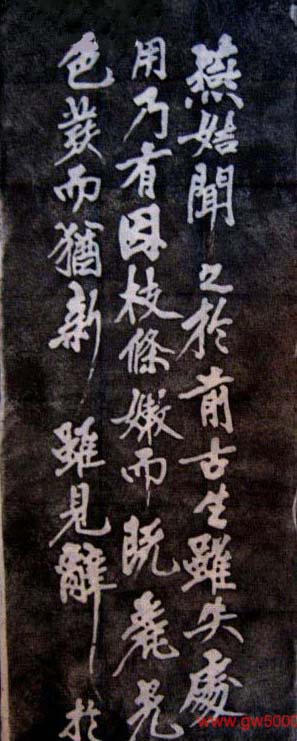 燕姞聞之於前古生雖失處
用乃有因枝條嫩而既麗光
色發而猶新雖見辭於
www.gw5000